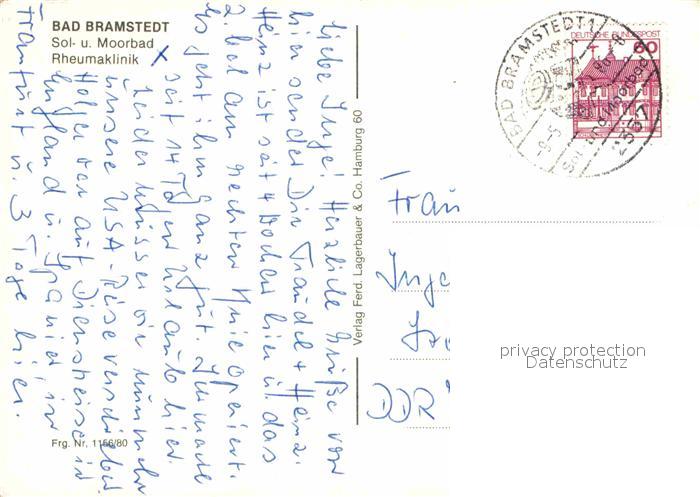 BAD BRAMSTEDT
Sol- u. Moorbad
Rheumaklinik
Liebe Inge! Herzliche Grüße von
hier sendet Dir Traudel + Heinz.
Heinz ist seit 4 Wochen hier u. das
2. Mal am rechten Knie operiert.
Es geht ihm ganz gut. Ich mache
x seit 14 Tg. den Urlaub hier.
Leider müssen wir nunmehr
unsere USA-Reise verschieben
Holger war auf Dienstreise in
England u. Spanien, in
Frankfurt u. 3 Tage hier.
Frg. Nr. 1156/80
Verlag Ferd. Lagerbauer & Co. Hamburg 60
DEUTSCHE BUNDESPOST
60
BAD BRAMSTEDT 1
Sol- und Moorbad
2357
Frau
Inge
DDR
privacy protection
Datenschutz